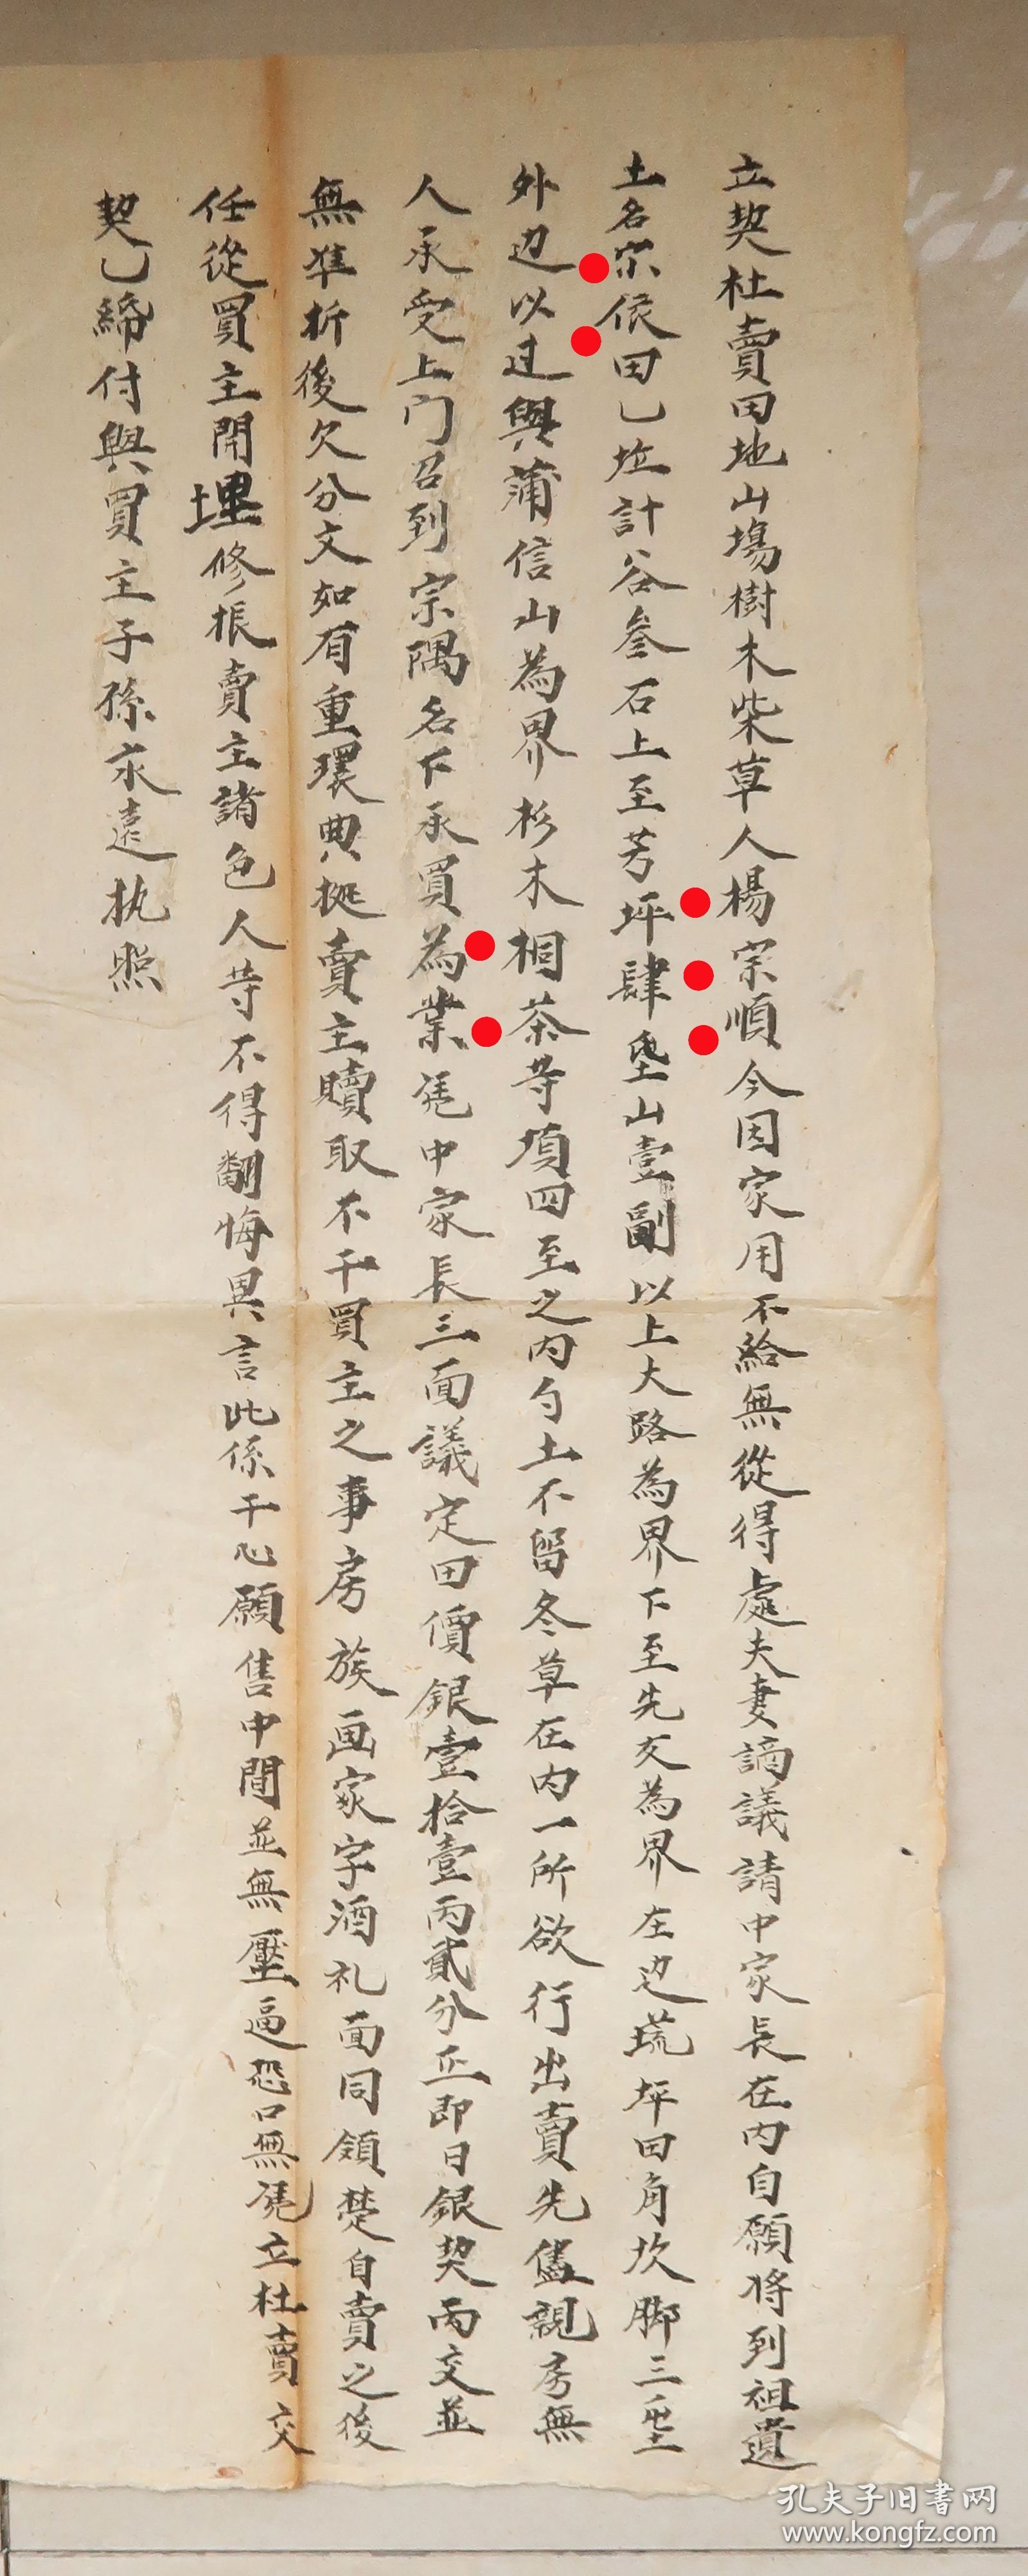 立契杜賣田地山塲樹木柴草人楊宗順今因家用不給無從得處夫妻謫議請中家長在内自願將列祖遺
土名宗依田乙坵計谷叁石上至芳坪肆垦山壹副以上大路為界下至先交為界左边塃坪田角坎脚三垦
外边以过與蒲信山為界杉木桐茶等項四至之内勺土不留冬草在内一所欲行出賣先儘親房無
人承受上门召到宗隅名下承買為業凴中家長三面議定田價銀壹拾壹两貳分正即日銀契両交並
無準折後欠分文如有重環典挺賣主贖取不干買主之事房族画家字酒礼面同領楚自賣之後
任從買主開埋修振賣主諸色人等不得翻悔異言此係干心願售中間並無壓逼恐口無凴立杜賣交
契乙締付與買主子孫永遠执照
孔夫子旧書网
www.kongfz.com